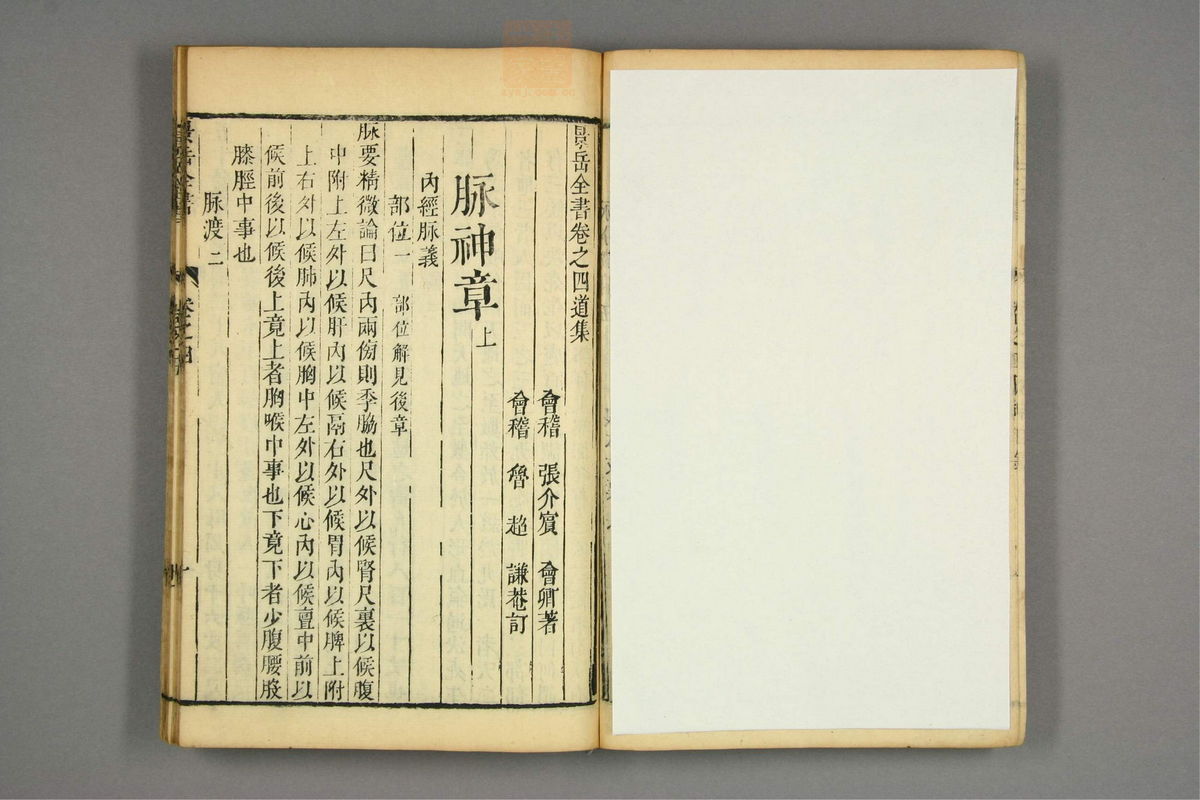 景岳全書卷之四道集
會稽 張介賓 會卿著
會稽 魯超 謙菴訂
脉神章上
內經脉義
部位一 部位解見後章
脉要精微論曰尺內兩傍則季脇也尺外以候腎尺裏以候腹
中附上左外以候肝內以候鬲右外以候胃內以候脾上附
上右外以候肺內以候胸中左外以候心內以候膻中前以
候前後以候後上竟上者胸喉中事也下竟下者少腹腰股
膝脛中事也
脉渡二
景岳全書
卷之四